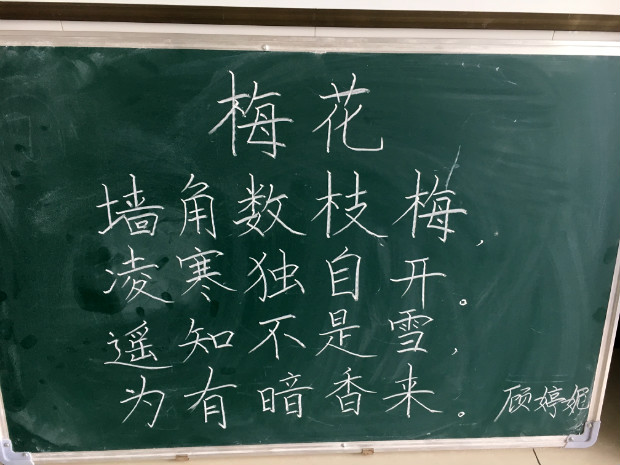 梅花
墙角数枝梅,
凌寒独自开。
遥知不是雪,
为有暗香来。
顾婷妮